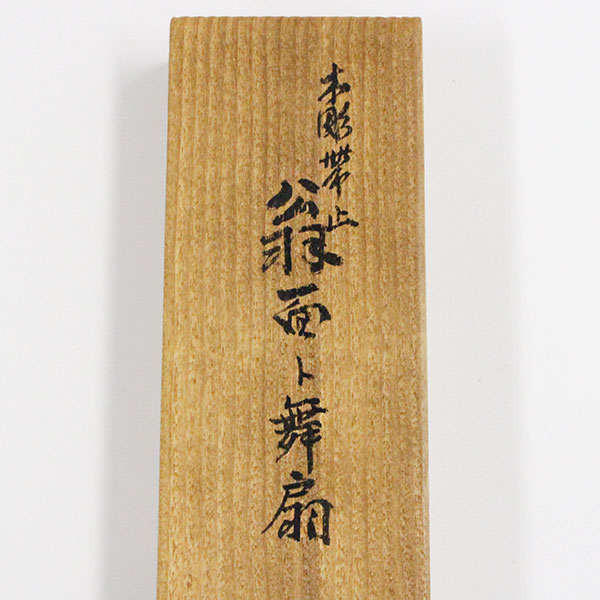 木彫帯止
翁面ト舞扇